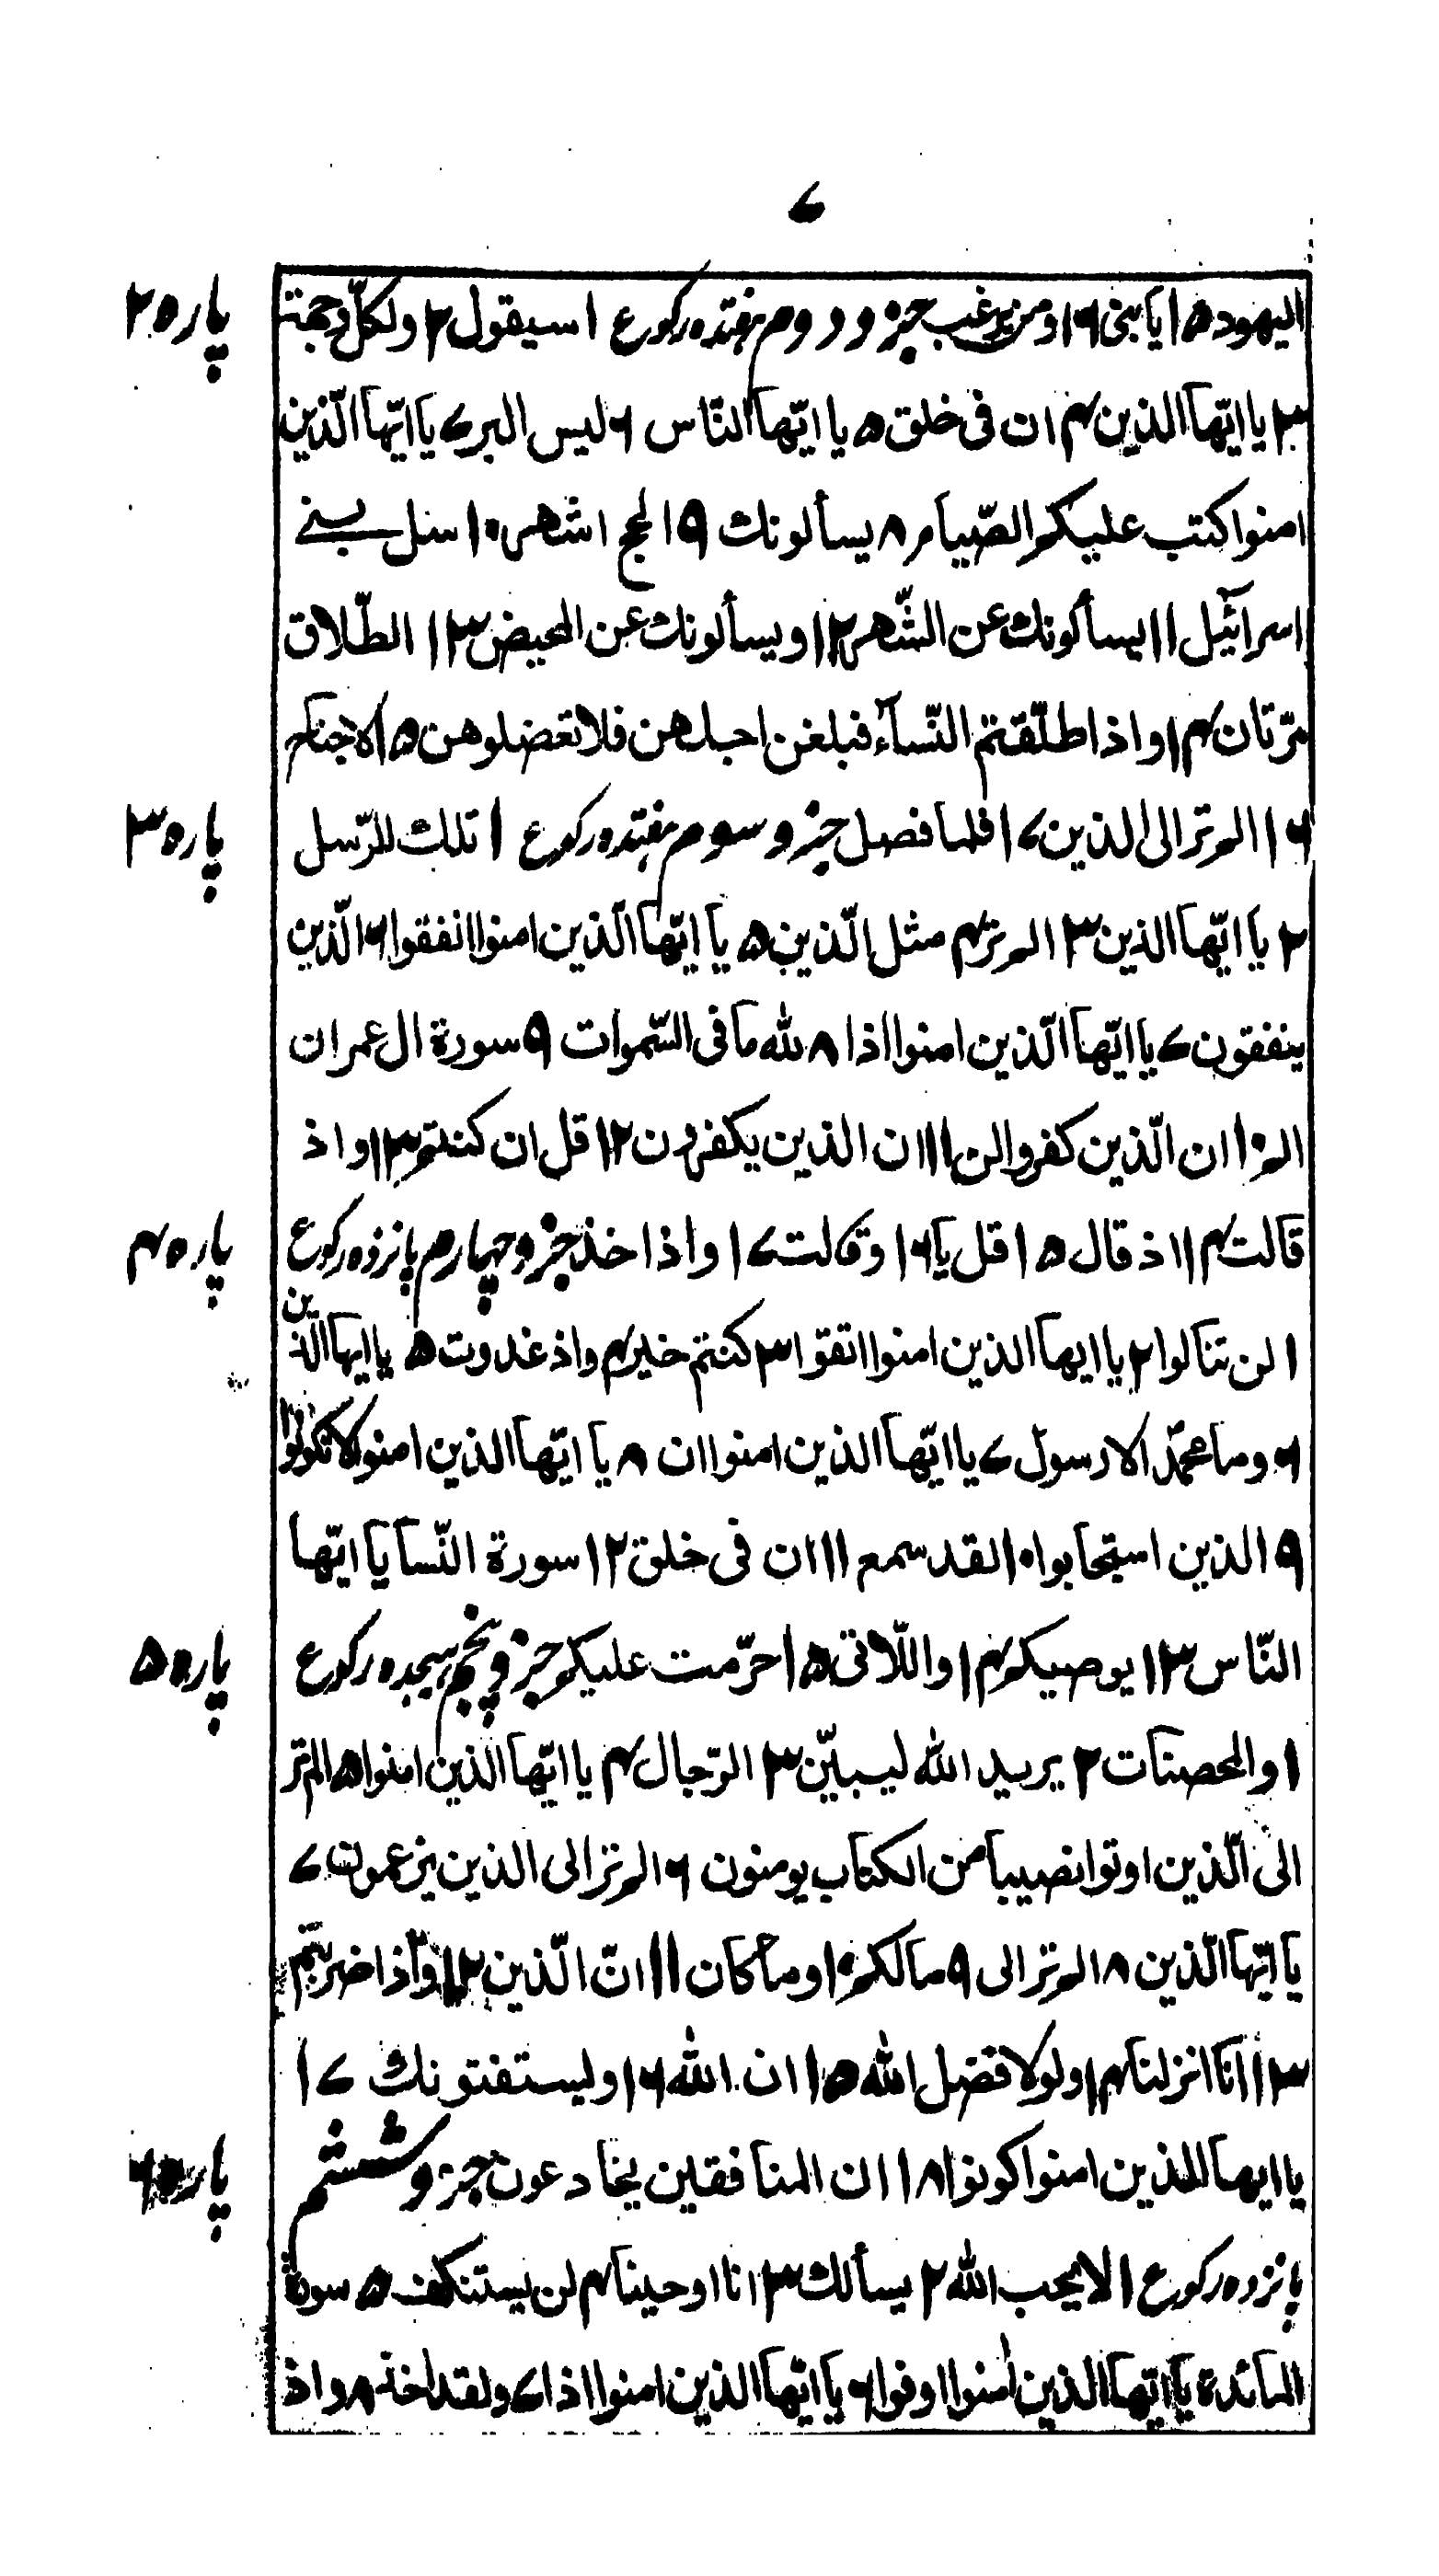 ۷
پاره ۲
الیهود ۱۵ یا بنی ۱۶ ومن یرغب جزو دوم هفتده رکوع ۱ سیقول ۲ ولکلّ وجهة
۳ یا ایّها الذین ۴ ان فی خلق ۵ یا ایّها النّاس ۶ لیس البر ۷ یا ایّها الّذین
امنوا کتب علیکم الصّیام ۸ یسألونك ۹ الحج اشهر ۱۰ سل بنے
اسرآئیل ۱۱ یسألونك عن الشّهر ۱۲ ویسألونك عن المحیض ۱۳ الطّلاق
مرّتان ۱۴ واذا طلّقتم النّسآء فبلغن اجلهن فلا تعضلوهن ۱۵ لا جناح
پاره ۳
۱۶ الم تر الی الذین ۱۷ فلما فصل جزو سوم هفتده رکوع ۱ تلك الرّسل
۲ یا ایّها الذین ۳ الم تر ۴ مثل الّذین ۵ یا ایّها الّذین امنوا انفقوا ۶ الّذین
ینفقون ۷ یا ایّها الّذین امنوا اذا ۸ لله ما فی السّموات ۹ سورة ال عمران
الم ۱۰ ان الّذین کفروا لن ۱۱ ان الذین یکفرون ۱۲ قل ان کنتم ۱۳ واذ
پاره ۴
قالت ۱۴ اذ قال ۱۵ قل یا ۱۶ وقالت ۱۷ واذ اخذ جزو چهارم پانزده رکوع
۱ لن تنالوا ۲ یا ایها الذین امنوا اتقوا ۳ کنتم خیر ۴ واذ غدوت ۵ یا ایها الذین
۶ وما محمّد الا رسول ۷ یا ایّها الذین امنوا ان ۸ یا ایّها الذین امنوا لا تکونوا
۹ الذین استجابوا ۱۰ لقد سمع ۱۱ ان فی خلق ۱۲ سورة النّسآ یا ایّها
پاره ۵
النّاس ۱۳ یوصیکم ۱۴ واللّاتی ۱۵ حرّمت علیکم جزو پنجم هیجده رکوع
۱ والمحصنات ۲ یرید الله لیبیّن ۳ الرّجال ۴ یا ایّها الذین امنوا ۵ الم تر
الی الّذین اوتوا نصیبا من الکتاب یومنون ۶ الم تر الی الذین یزعمون ۷
یا ایّها الّذین ۸ الم تر الی ۹ مالکم ۱۰ وما کان ۱۱ انّ الّذین ۱۲ واذا ضربتم
۱۳ انا انزلنا ۱۴ ولولا فضل الله ۱۵ ان الله ۱۶ ولیستفتونك ۱۷
پاره ۶
یا ایها الذین امنوا کونوا ۱۸ ان المنافقین یخادعون جزو ششم
پانزده رکوع ۱ لا یحب الله ۲ یسألك ۳ انا اوحینا ۴ لن یستنکف ۵ سورة
المائدة یا ایّها الذین امنوا اوفوا ۶ یا ایّها الذین امنوا اذا ۷ ولقد اخذ ۸ واذ